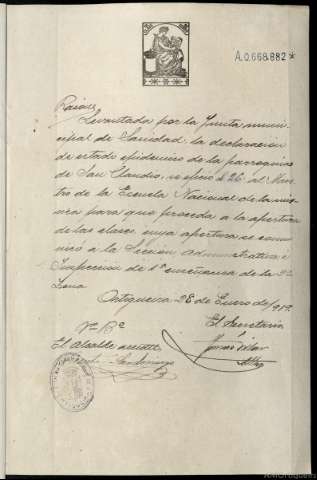 A.0.668.882*
Levantada por la Junta muni-
cipal de Sanidad, la declaración
de estado epidémico de la parroquia
de San Claudio, se ofició el 26 al Maes-
tro de la Escuela Nacional de la mis-
ma para que proceda a la apertura
de las clases cuya apertura se comu-
nicó a la Sección Administrativa e
Inspección de 1ª enseñanza de la 2ª
Zona
Ortigueira 28 de Enero de 191
Vº Bº
El Secretario
El Alcalde acctal